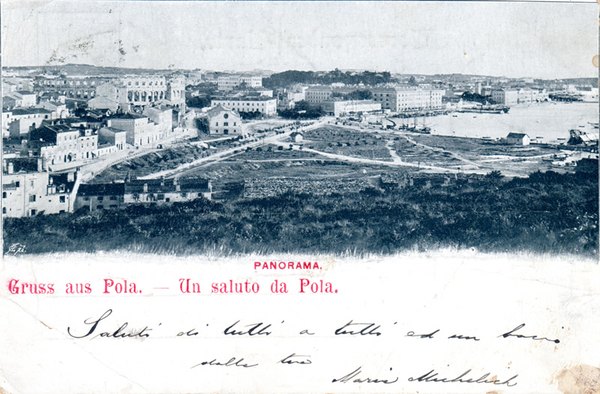 PANORAMA.
Gruss aus Pola. — Un saluto da Pola.
Saluti di tutti a tutti ed un bacio
dalla tua
Maria Michelich